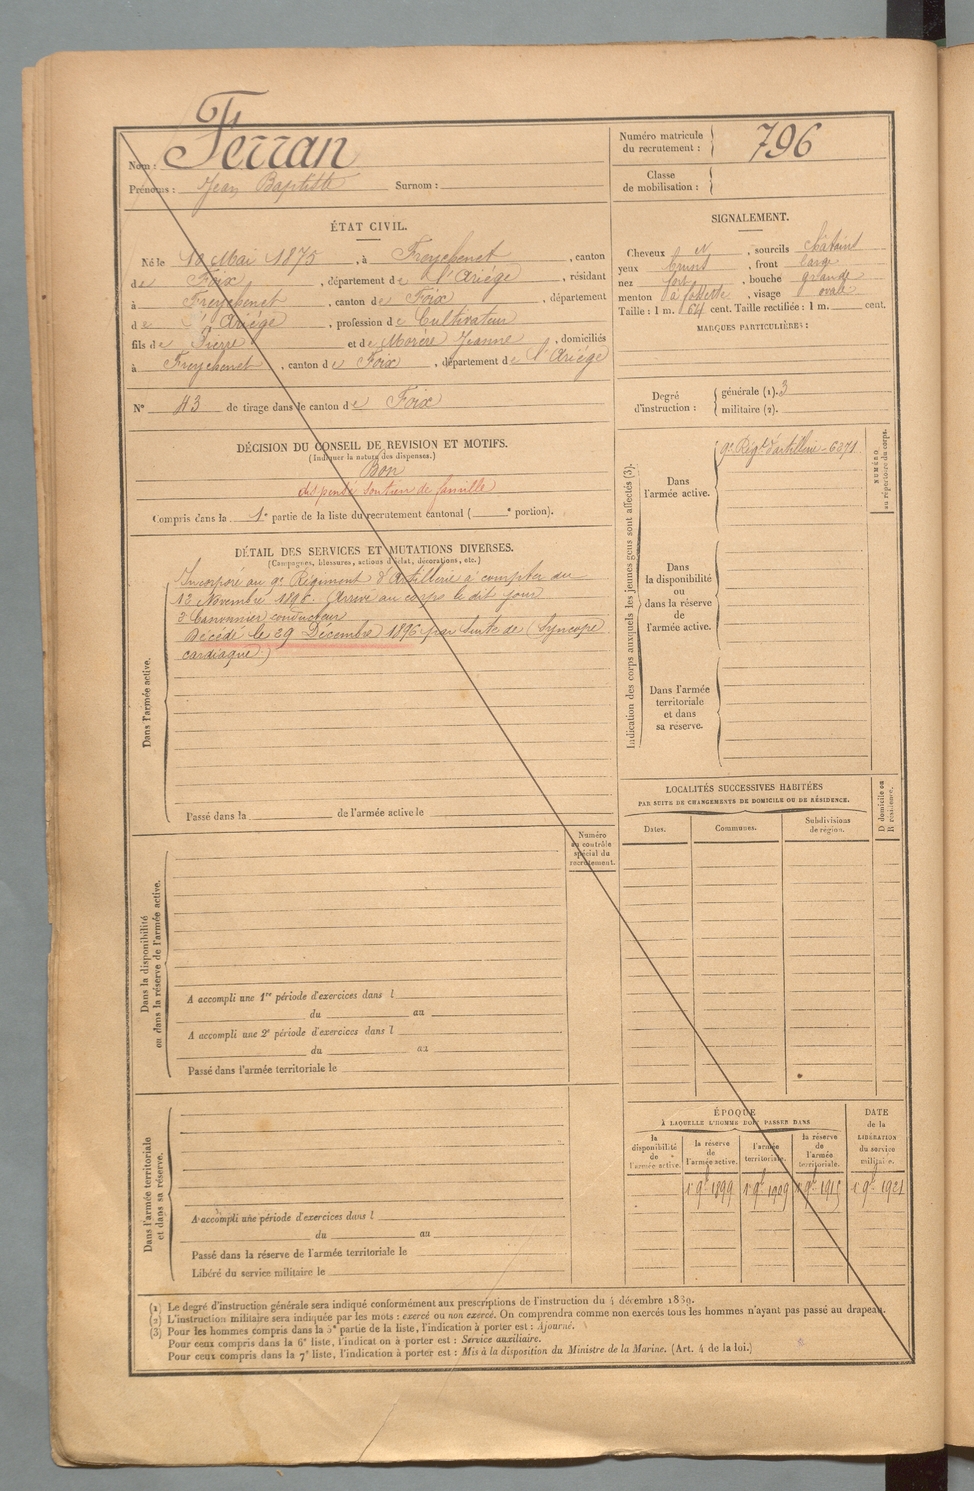 Nom : Ferran
Prénoms : Jean Baptiste Surnom :
Numéro matricule du recrutement : 796
Classe de mobilisation :
ÉTAT CIVIL.
Né le 10 Mai 1875, à Freychenet, canton
de Foix, département de l'Ariége, résidant
à Freychenet, canton de Foix, département
de l'Ariége, profession de Cultivateur
fils de Pierre et de Morère Jeanne, domiciliés
à Freychenet, canton de Foix, département de l'Ariége
N° 43 de tirage dans le canton de Foix
SIGNALEMENT.
Cheveux N, sourcils châtains
yeux, front large
nez fort, bouche grande
menton à fossette, visage ovale
Taille : 1 m. 64 cent. Taille rectifiée : 1 m. cent.
MARQUES PARTICULIÈRES :
Degré d'instruction : générale (1). 3
militaire (2).
DÉCISION DU CONSEIL DE REVISION ET MOTIFS.
(Indiquer la nature des dispenses.)
Bon
dispensé soutien de famille
Compris dans la 1e partie de la liste du recrutement cantonal ( e portion).
DÉTAIL DES SERVICES ET MUTATIONS DIVERSES.
(Campagnes, blessures, actions d'éclat, décorations, etc.)
Dans l'armée active.
Incorporé au 9e Régiment d'Artillerie à compter du
13 Novembre 1896. Arrivé au corps le dit jour
2e Canonnier conducteur
Décédé le 29 Décembre 1896 par suite de (Syncope
cardiaque.)
Passé dans la de l'armée active le
Indication des corps auxquels les jeunes gens sont affectés (3).
NUMÉRO au répertoire du corps.
Dans l'armée active.
9e Régt d'artillerie - 6371
Dans la disponibilité ou dans la réserve de l'armée active.
Dans l'armée territoriale et dans sa réserve.
LOCALITÉS SUCCESSIVES HABITÉES
PAR SUITE DE CHANGEMENTS DE DOMICILE OU DE RÉSIDENCE.
Dates. Communes. Subdivisions de région.
D domicile ou R résidence.
Numéro au contrôle spécial du recrutement.
Dans la disponibilité
ou dans la réserve de l'armée active.
A accompli une 1re période d'exercices dans l
du au
A accompli une 2e période d'exercices dans l
du au
Passé dans l'armée territoriale le
Dans l'armée territoriale
et dans sa réserve.
A accompli une période d'exercices dans l
du au
Passé dans la réserve de l'armée territoriale le
Libéré du service militaire le
ÉPOQUE
À LAQUELLE L'HOMME DOIT PASSER DANS
la disponibilité de l'armée active.
la réserve de l'armée active.
l'armée territoriale.
la réserve de l'armée territoriale.
DATE de la LIBÉRATION du service militaire.
1r 9bre 1899 1r 9bre 1909 1r 9bre 1915 1r 9bre 1921
(1) Le degré d'instruction générale sera indiqué conformément aux prescriptions de l'instruction du 4 décembre 1889.
(2) L'instruction militaire sera indiquée par les mots : exercé ou non exercé. On comprendra comme non exercés tous les hommes n'ayant pas passé au drapeau.
(3) Pour les hommes compris dans la 5e partie de la liste, l'indication à porter est : Ajourné.
Pour ceux compris dans la 6e liste, l'indication à porter est : Service auxiliaire.
Pour ceux compris dans la 7e liste, l'indication à porter est : Mis à la disposition du Ministre de la Marine. (Art. 4 de la loi.)